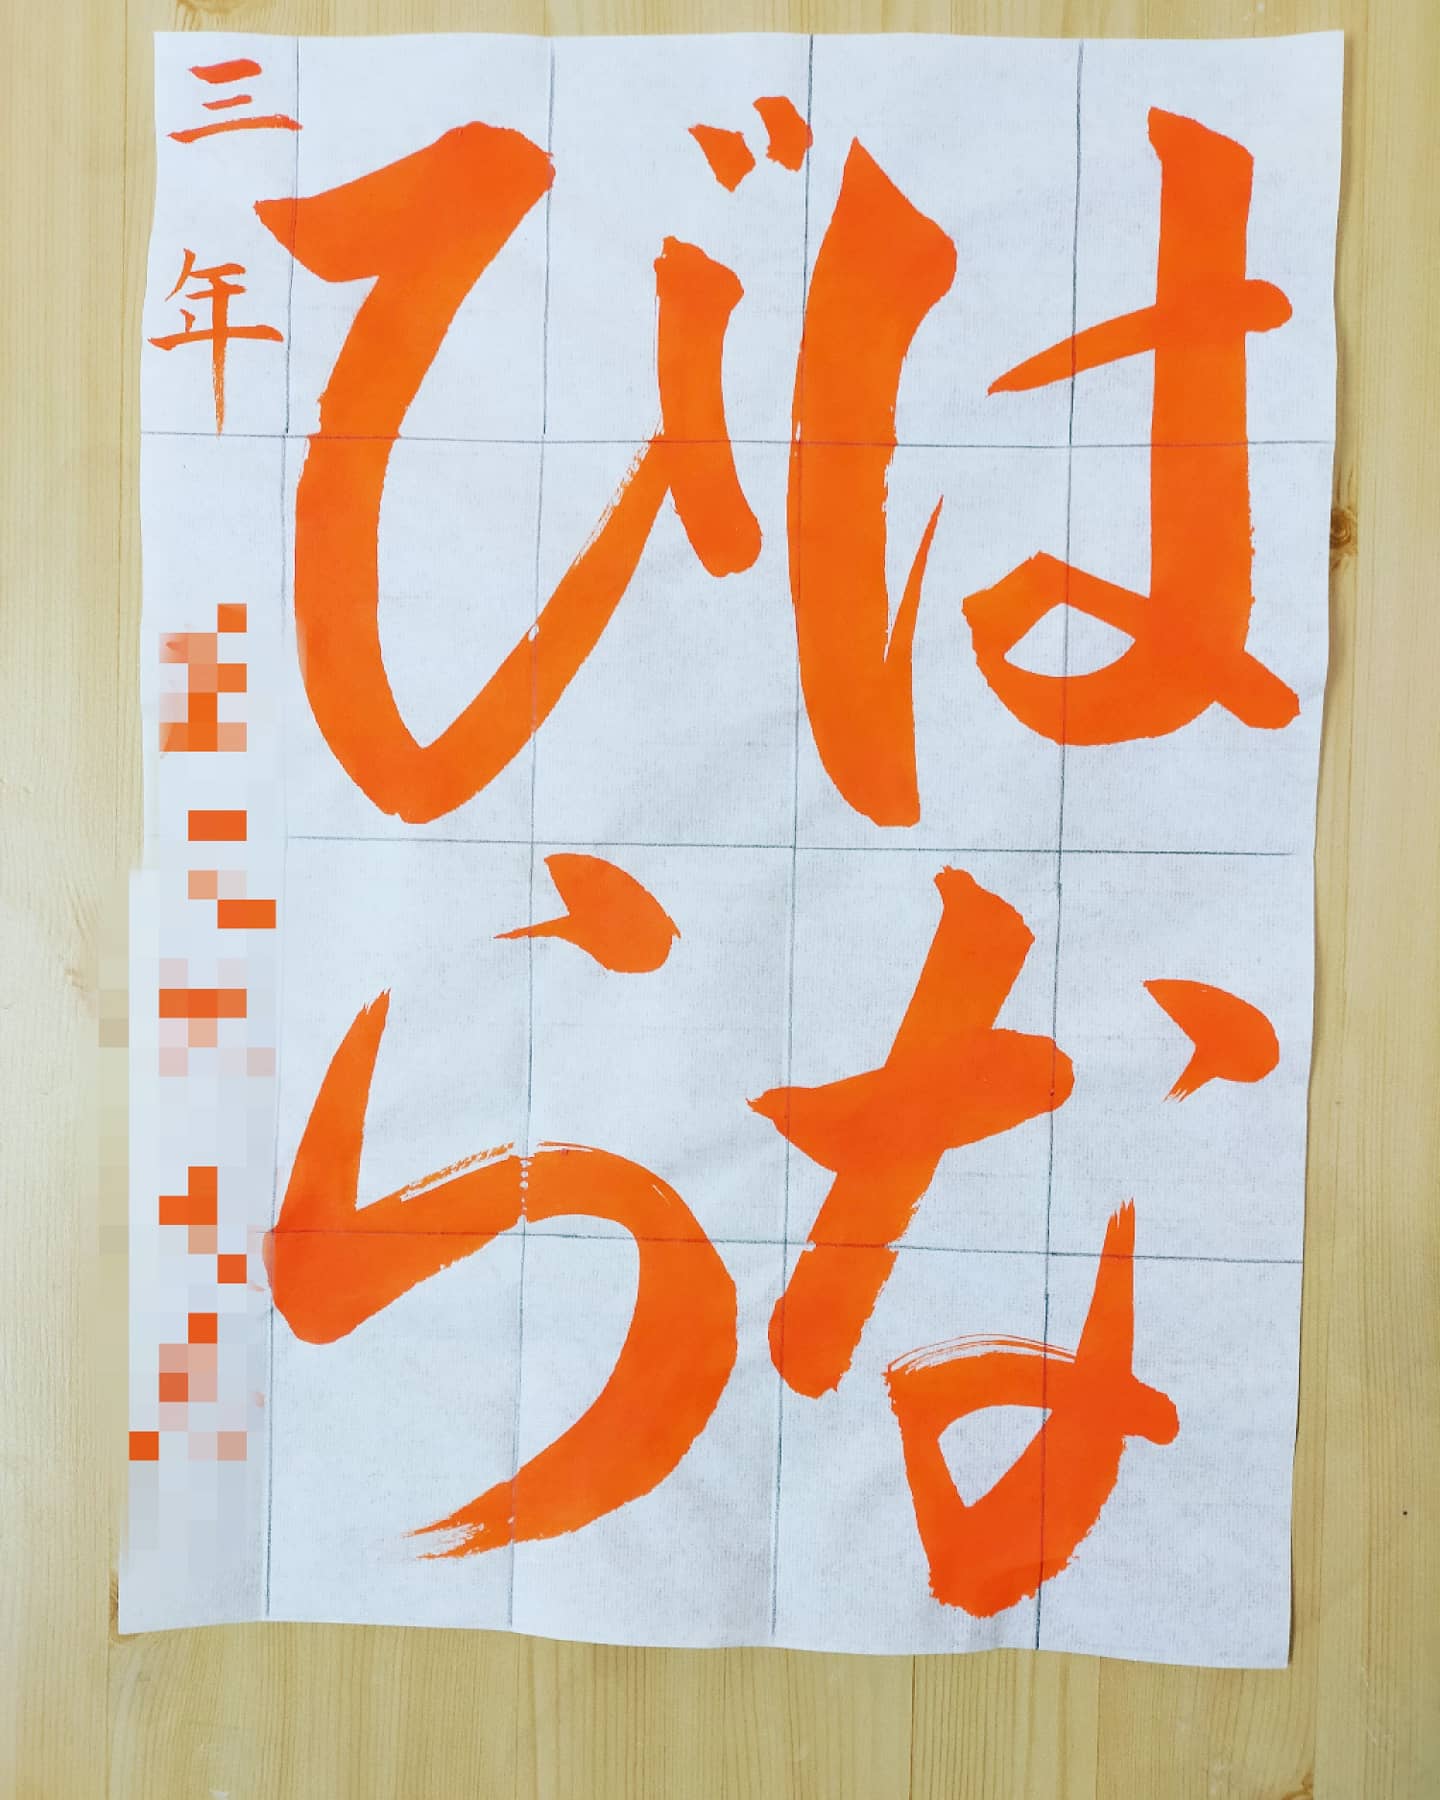 はな
びら
三年